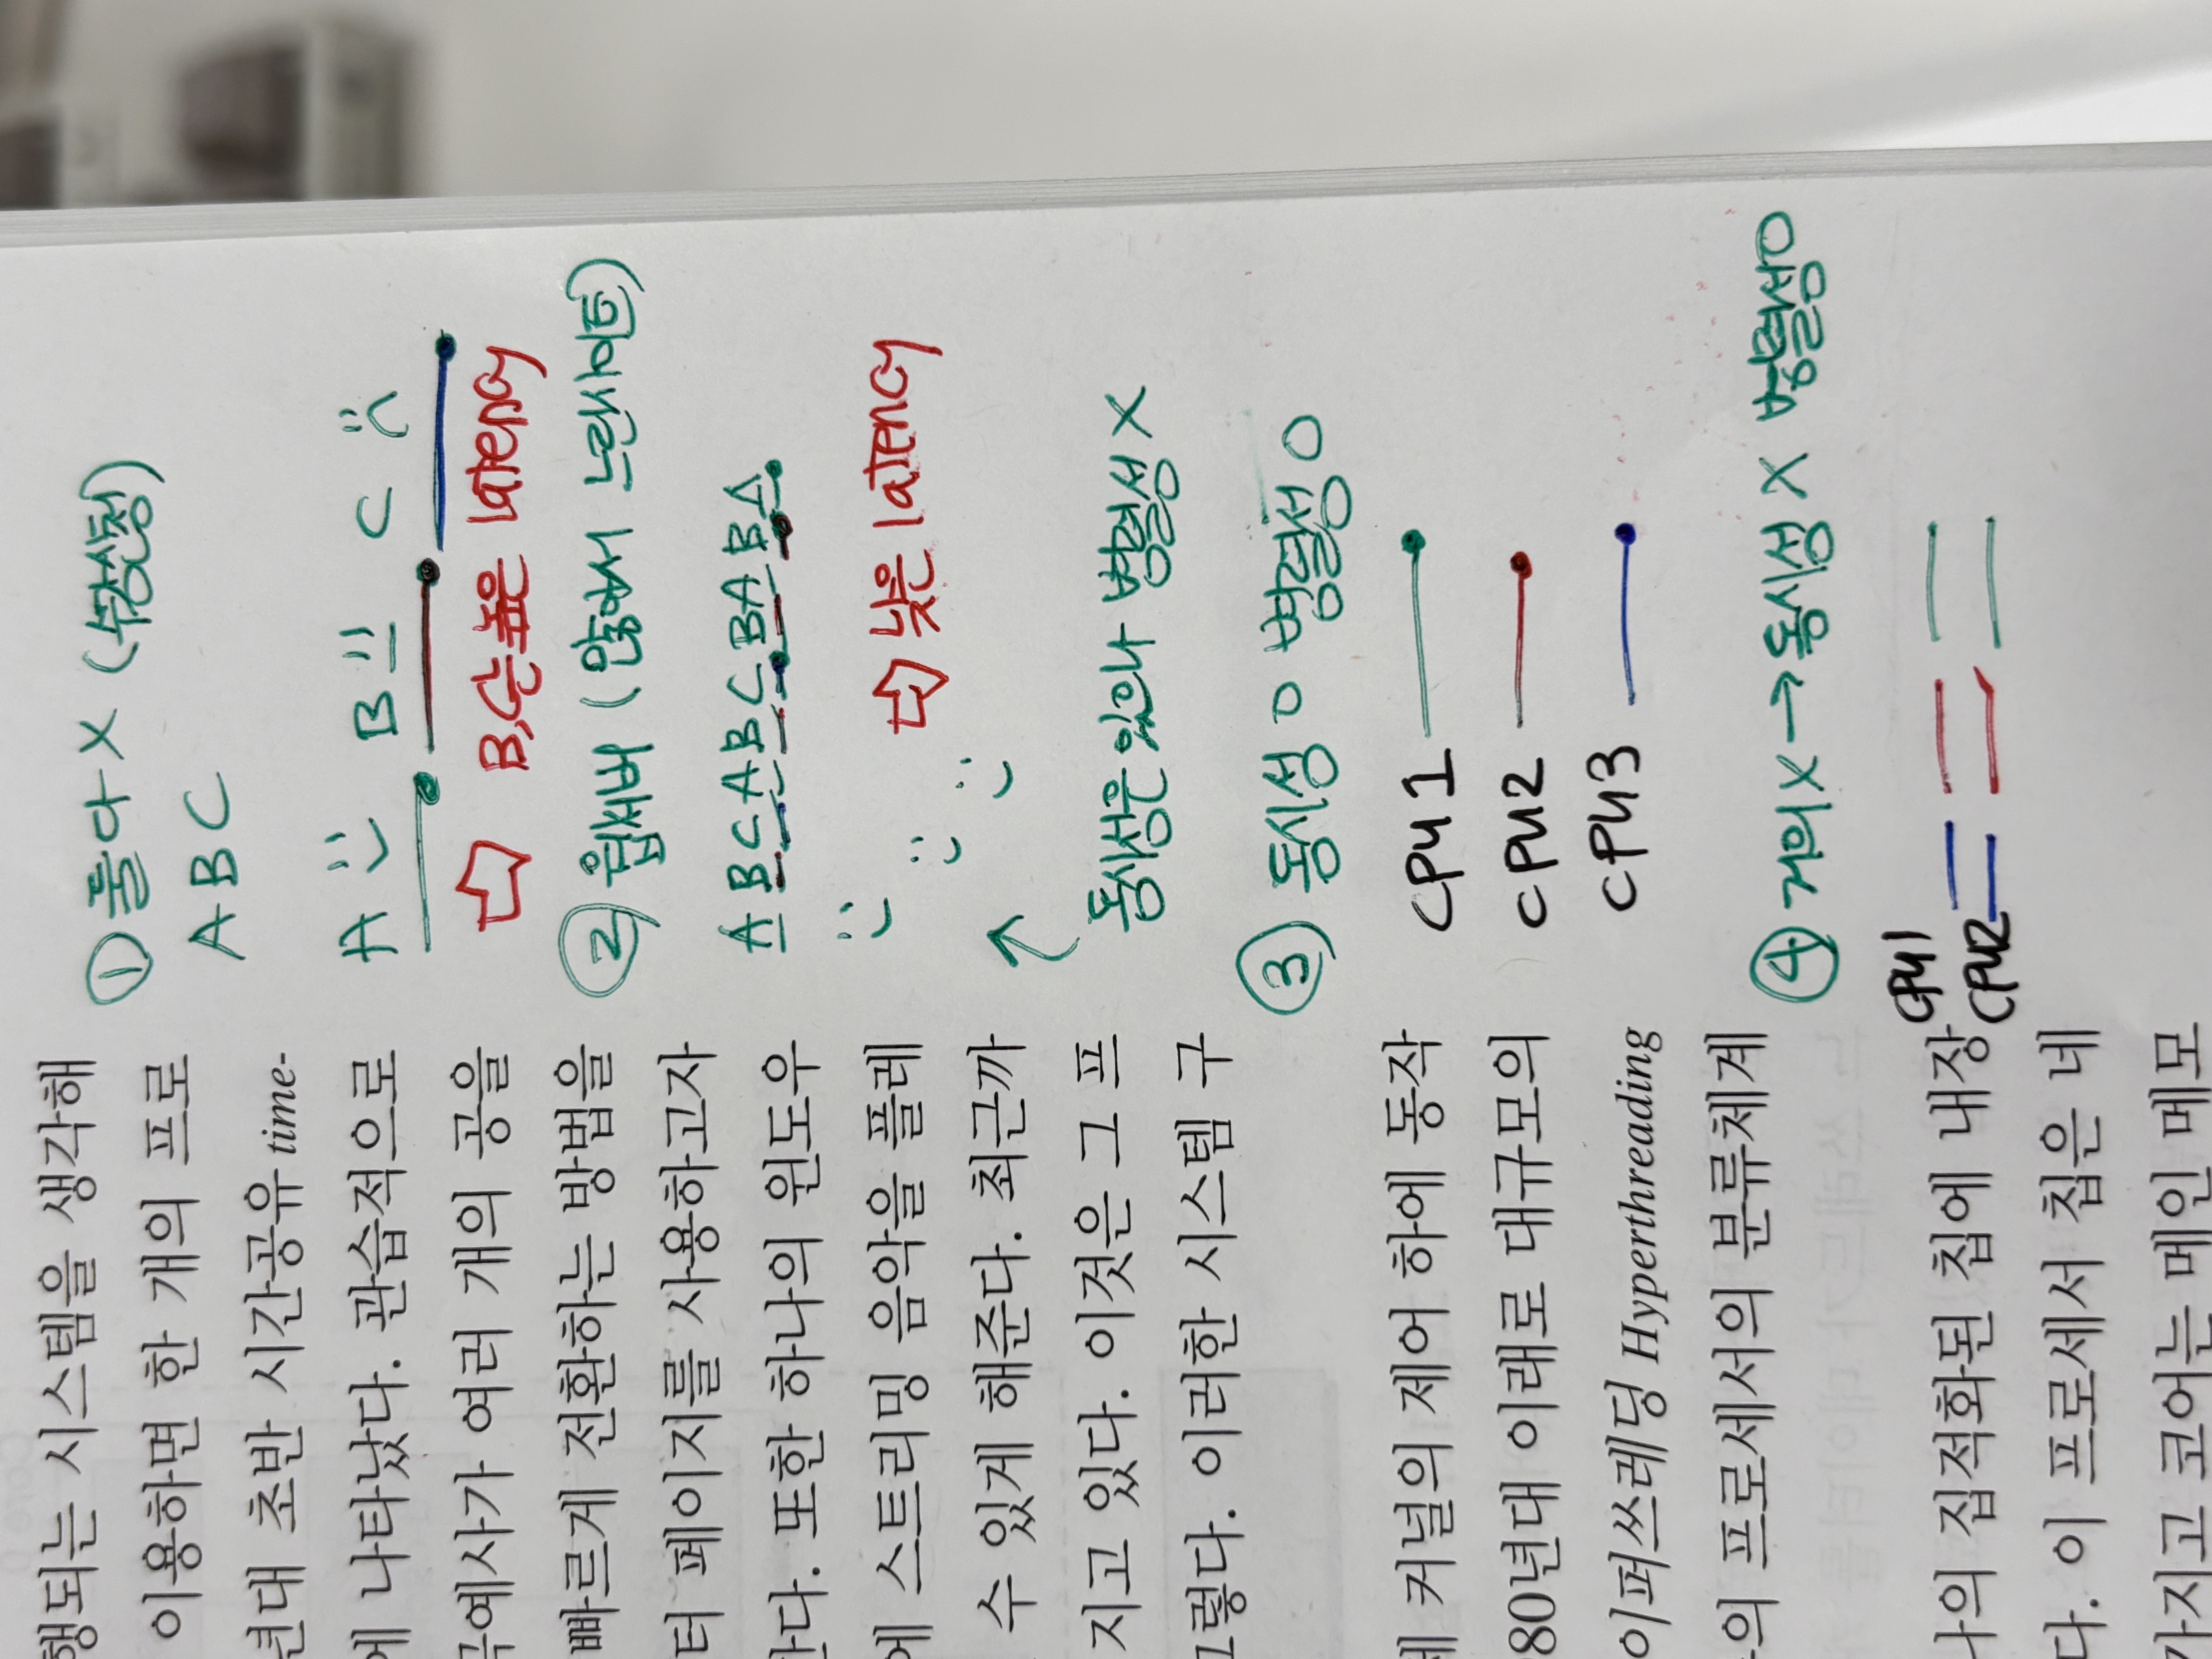 행되는 시스템을 생각해
이용하면 한 개의 프로
년대 초반 시간공유 time-
에 나타났다. 관습적으로
곡예사가 여러 개의 공을
빠르게 전환하는 방법을
터 페이지를 사용하고자
한다. 또한 하나의 윈도우
에 스트리밍 음악을 플레
수 있게 해준다. 최근까
지고 있다. 이것은 그 프
그렇다. 이러한 시스템 구
체 커널의 제어 하에 동작
80년대 이래로 대규모의
이퍼쓰레딩 Hyperthreading
의 프로세서의 분류체계
나의 집적화된 칩에 내장
다. 이 프로세서 칩은 네
가지고 코어는 메인 메모
① 둘다 X (수강신청)
A B C
A B C
B, C는 높은 latency
② 웹서버 (않에서 느린사이트)
A B C A B C B A B A
낮은 latency
동시성은 있으나 병렬성 X
③ 동시성 O 병렬성 O
CPU 1
CPU 2
CPU 3
④ 거의 X → 동시성 X 병렬성 O
CPU1
CPU2